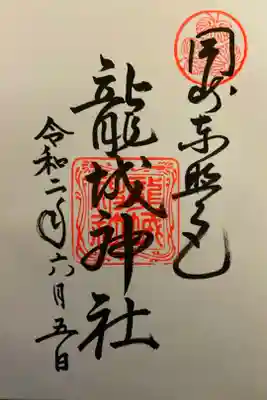 岡崎東照宮
龍城神社
令和二年六月五日